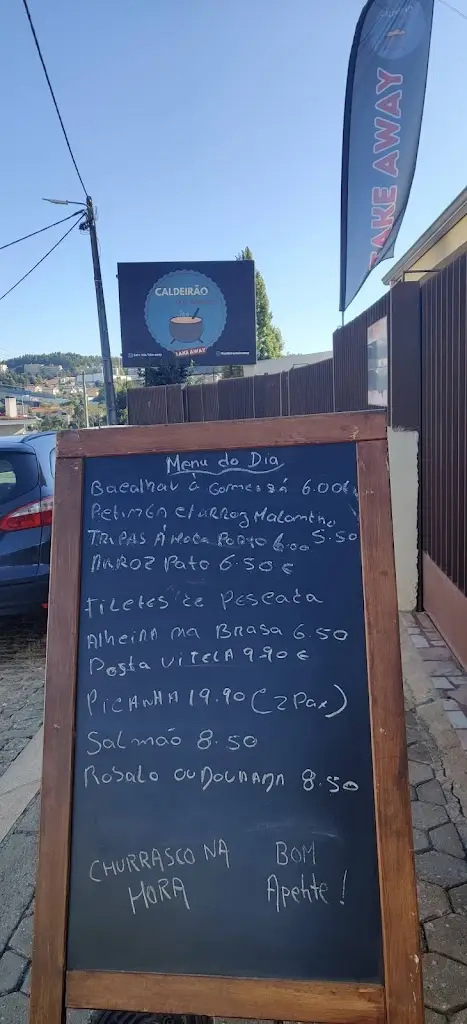 TAKE AWAY
CALDEIRÃO
TAKE AWAY
Menu do Dia
Bacalhau à Gomes sá 6.00€
Petinga c/arroz Malandrinho 5.50
TRIPAS À Moda Porto 6.00
ARROZ Pato 6.50€
Filetes de Pescada
Alheira na Brasa 6.50
Posta VITELA 9.90€
PICANHA 19.90 (2 Pax)
Salmão 8.50
Robalo ou DOURADA 8.50
CHURRASCO NA
HORA
BOM
Apetite!